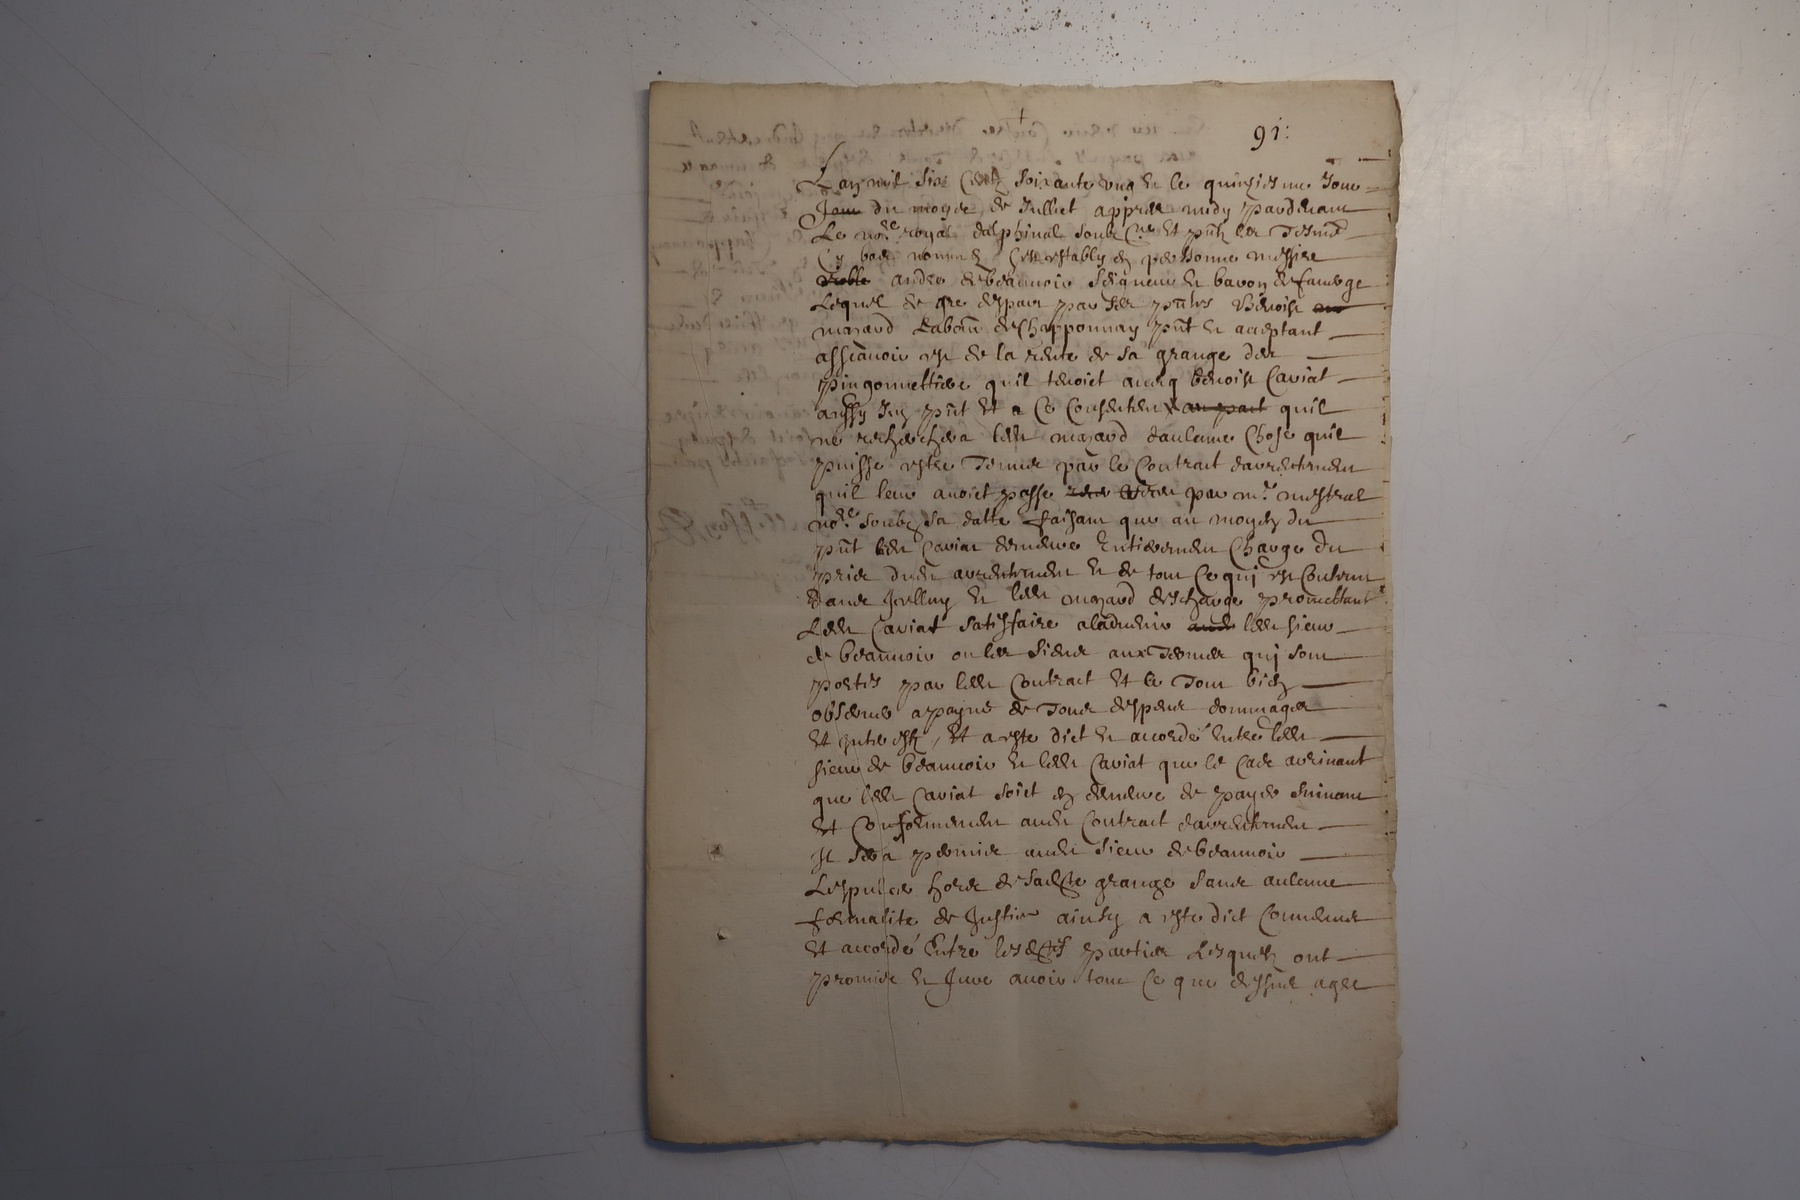 91:
Lan mil six centz soixante ung et le quinziesme Jour
Jour du moys de Julliet appres midy pardevant
Le no.re royal dalphinal soubz.né et pntz les Tesm
Cy bas nommes sest estably en personne messire
noble andre de beauvoir seigneur et baron de faverge
Lequel de gre despart par les pntes Benoist
mazard Labour de Chapponnay pnt et acceptant
assçavoir est de la rente de sa grange des
pingonnettiere quil tenoict avecq benoist Caviat
aussy Icy pnt et a Ce Consentent au part quil
ne recherchera ledt mazard daulcune Chose quil
puisse estre Tenus par le Contrat darrentement
quil leur avoict passe par m.e mestral
no.re soubz sa datte faisant que au moyen du
pnt ledt Caviat demeure Entierement Charge du
pris dudt arrentement et de tout Ce qui est Contenu
dans Icelluy et ledt mazard descharge promettant
Ledt Caviat satisfaire aladvenir audt ledt sieur
de beauvoir ou les siens aux Termes qui sont
portes par ledt Contract et le Tout bien
observer a payne de Tous despens dommages
Et interestz, Et a este dict et accordé Entre ledt
sieur de beauvoir et ledt Caviat que le Cas arrivant
que ledt Caviat soict en demeure de payer suivant
Et Conformement audt Contract darrentement
Il sera permis audt sieur de beauvoir
Lespulcer hors de sadicte grange sans aulcune
formalite de Justice ainsy a este dict Convenus
Et accordé Entre lesdctes parties Lesquelz ont
promis et Jure avoir tout Ce que dessus agre